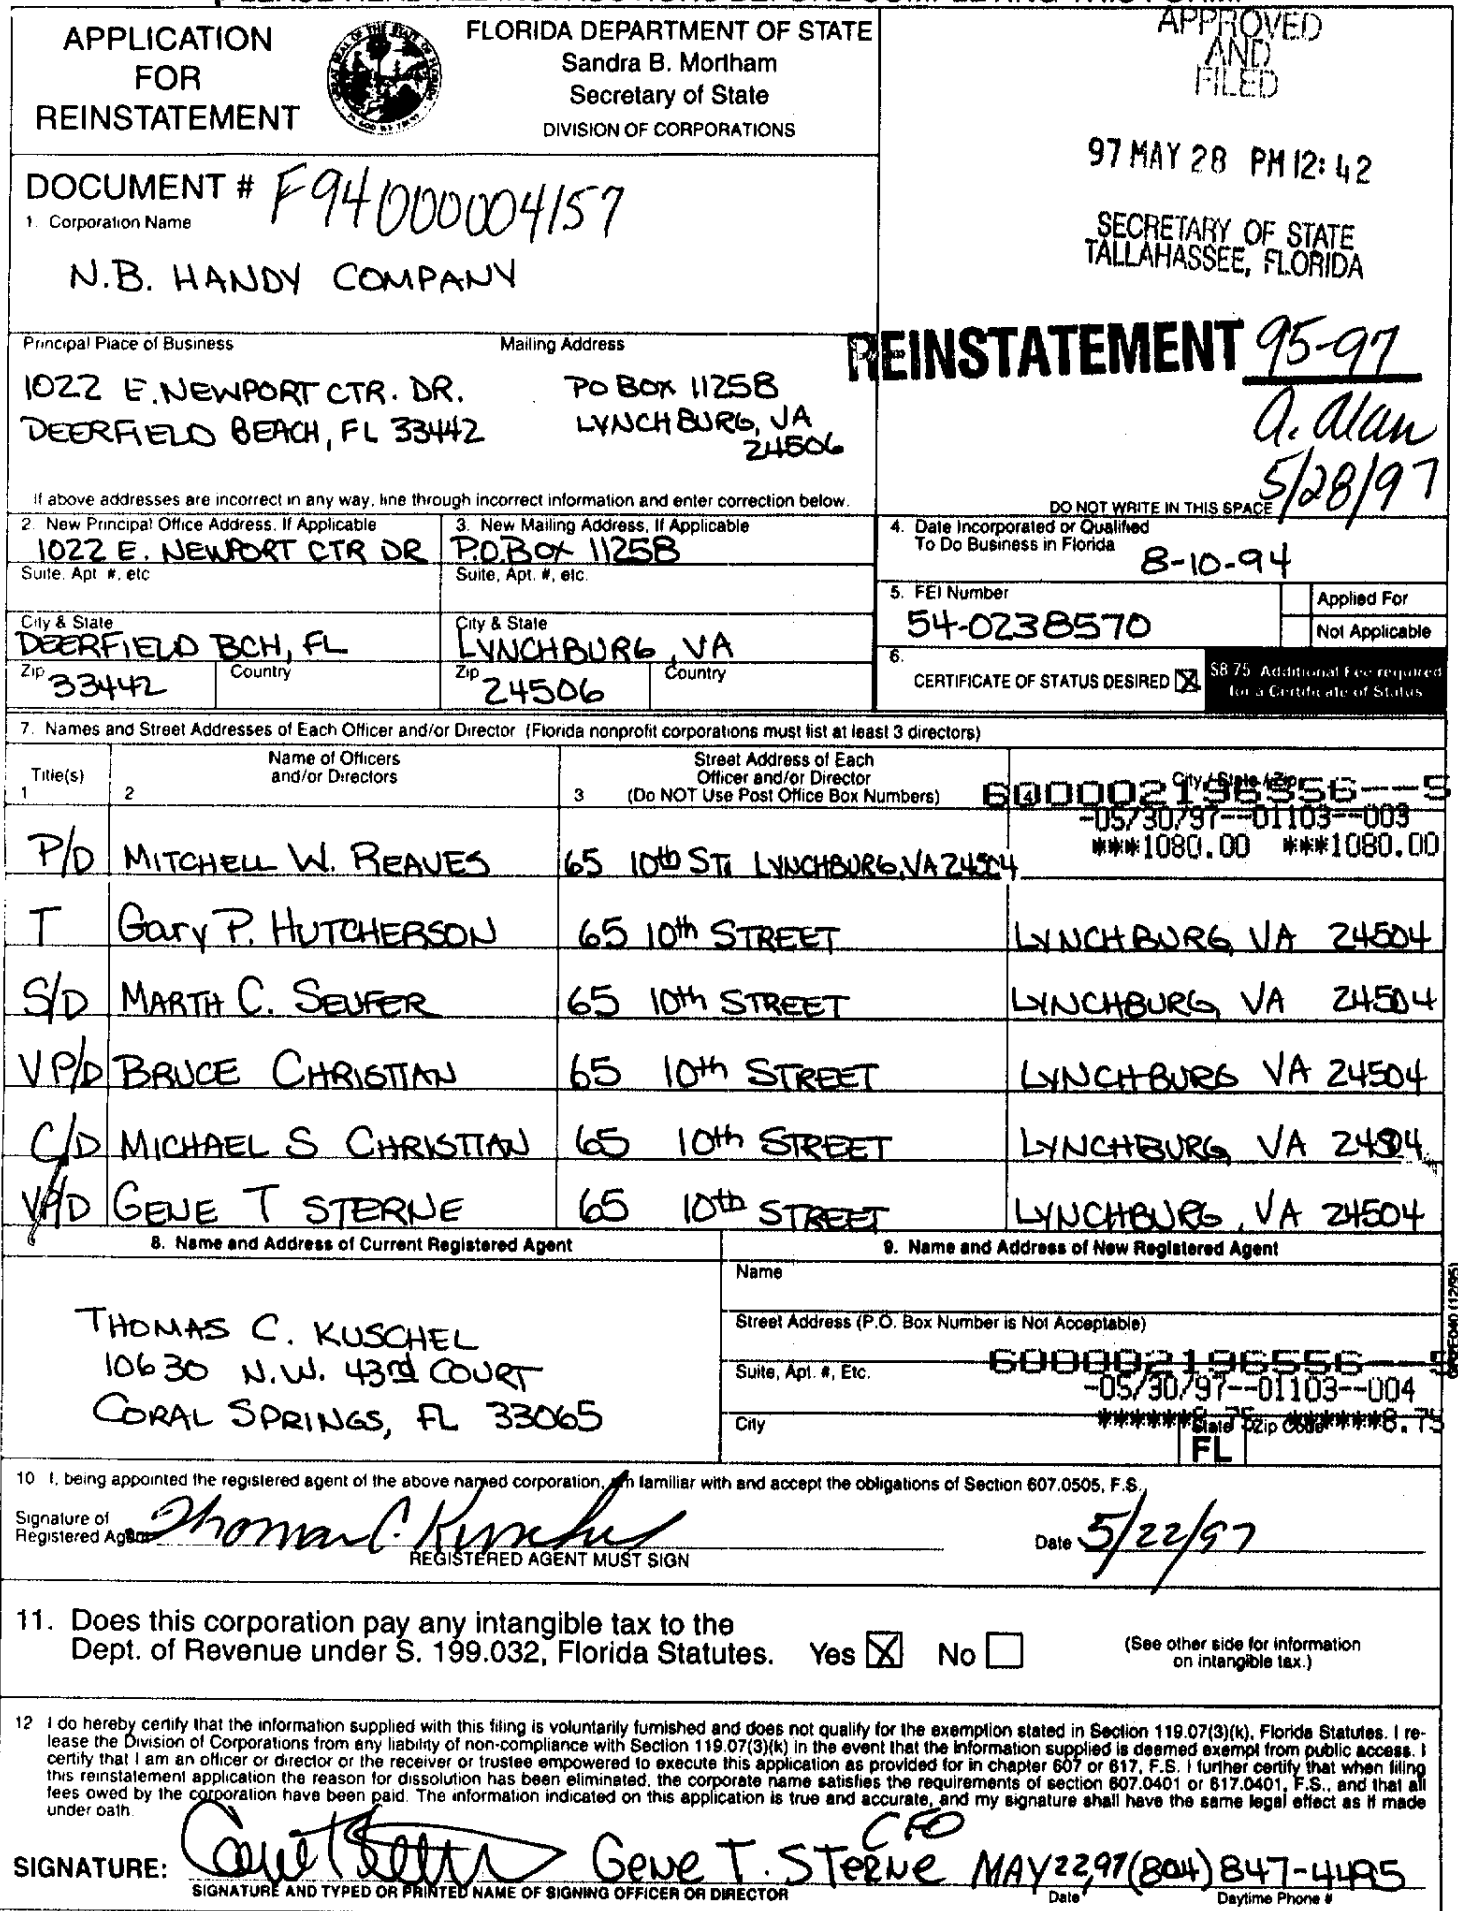 APPLICATION
FOR
REINSTATEMENT
FLORIDA DEPARTMENT OF STATE
Sandra B. Mortham
Secretary of State
DIVISION OF CORPORATIONS
APPROVED
AND
FILED
97 MAY 28 PM 12: 42
SECRETARY OF STATE
TALLAHASSEE, FLORIDA
DOCUMENT # F94000004157
1. Corporation Name
N.B. HANDY COMPANY
REINSTATEMENT 95-97
a. alan
5/28/97
Principal Place of Business Mailing Address
1022 E. NEWPORT CTR. DR. PO BOX 11258
DEERFIELD BEACH, FL 33442 LYNCHBURG, VA
24506
If above addresses are incorrect in any way, line through incorrect information and enter correction below.
DO NOT WRITE IN THIS SPACE
2. New Principal Office Address, If Applicable
1022 E. NEWPORT CTR DR
3. New Mailing Address, If Applicable
P.O. BOX 11258
4. Date Incorporated or Qualified
To Do Business in Florida
8-10-94
Suite. Apt #, etc
Suite, Apt. #, etc.
5. FEI Number
54-0238570
Applied For
Not Applicable
City & State
DEERFIELD BCH, FL
City & State
LYNCHBURG, VA
Zip 33442 Country
Zip 24506 Country
6.
CERTIFICATE OF STATUS DESIRED X
$8.75 Additional Fee required
for a Certificate of Status
7. Names and Street Addresses of Each Officer and/or Director (Florida nonprofit corporations must list at least 3 directors)
Title(s)
1
Name of Officers
and/or Directors
2
Street Address of Each
Officer and/or Director
3 (Do NOT Use Post Office Box Numbers)
4 City / State / Zip
600002196556--5
-05/30/97--01103--003
***1080.00 ***1080.00
P/D MITCHELL W. REAVES 65 10th ST. LYNCHBURG, VA 24504
T Gary P. HUTCHERSON 65 10th STREET LYNCHBURG, VA 24504
S/D MARTH C. SEUFER 65 10th STREET LYNCHBURG, VA 24504
VP/D BRUCE CHRISTIAN 65 10th STREET LYNCHBURG VA 24504
C/D MICHAEL S CHRISTIAN 65 10th STREET LYNCHBURG, VA 24504
V/D GENE T STERNE 65 10th STREET LYNCHBURG, VA 24504
8. Name and Address of Current Registered Agent
THOMAS C. KUSCHEL
10630 N.W. 43rd COURT
CORAL SPRINGS, FL 33065
9. Name and Address of New Registered Agent
Name
Street Address (P.O. Box Number is Not Acceptable)
Suite, Apt. #, Etc.
600002196556--5
-05/30/97--01103--004
******8.75 ******8.75
City State Zip Code
FL
10 I, being appointed the registered agent of the above named corporation, am familiar with and accept the obligations of Section 607.0505, F.S.
Signature of
Registered Agent Thomas C. Kuschel Date 5/22/97
REGISTERED AGENT MUST SIGN
11. Does this corporation pay any intangible tax to the
Dept. of Revenue under S. 199.032, Florida Statutes. Yes X No
(See other side for information
on intangible tax.)
12 I do hereby certify that the information supplied with this filing is voluntarily furnished and does not qualify for the exemption stated in Section 119.07(3)(k), Florida Statutes. I re-
lease the Division of Corporations from any liability of non-compliance with Section 119.07(3)(k) in the event that the information supplied is deemed exempt from public access. I
certify that I am an officer or director or the receiver or trustee empowered to execute this application as provided for in chapter 607 or 617, F.S. I further certify that when filing
this reinstatement application the reason for dissolution has been eliminated, the corporate name satisfies the requirements of section 607.0401 or 617.0401, F.S., and that all
fees owed by the corporation have been paid. The information indicated on this application is true and accurate, and my signature shall have the same legal effect as if made
under oath.
CFO
SIGNATURE: Gene T. Sterne MAY 22, 97 (804) 847-4495
SIGNATURE AND TYPED OR PRINTED NAME OF SIGNING OFFICER OR DIRECTOR Date Daytime Phone #